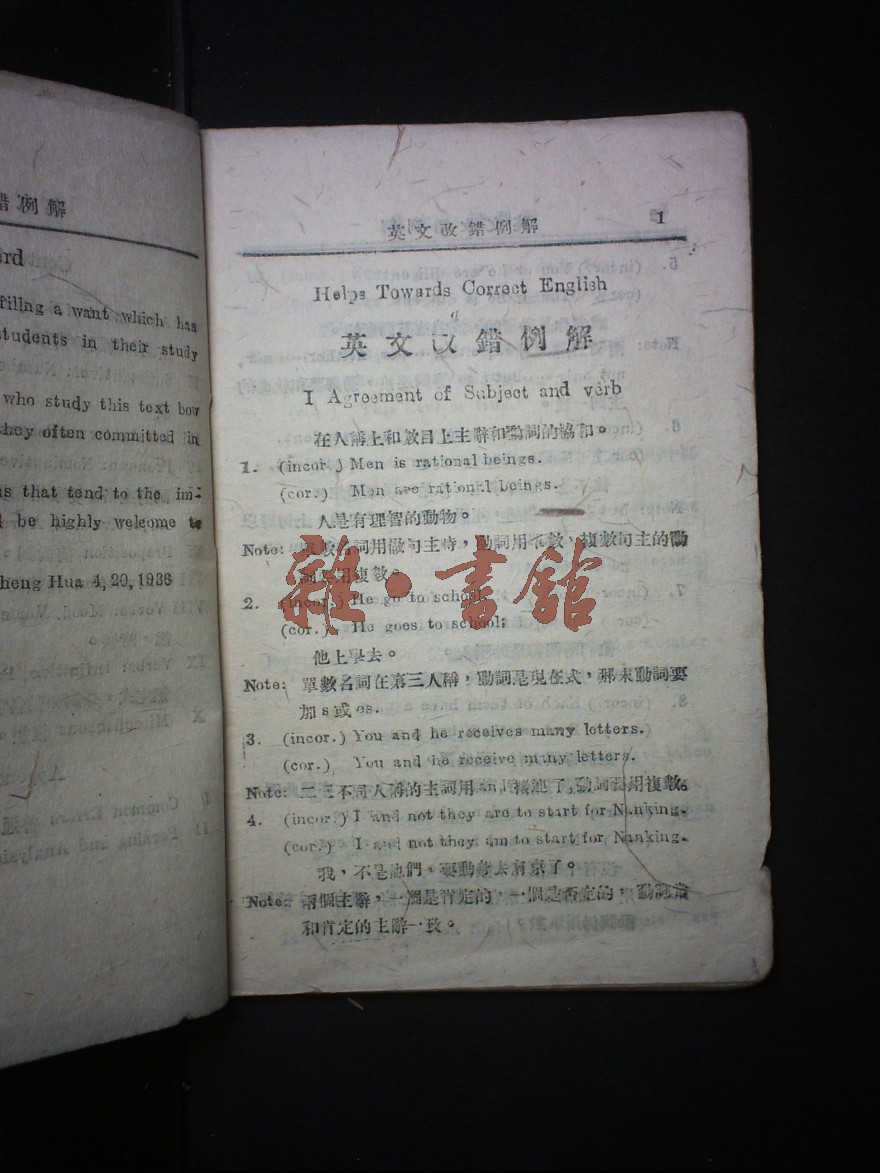 錯例解
rd
filing a want which has
students in their study
who study this text bow
they often committed in
s that tend to the im-
be highly welcome to
heng Hua 4, 20, 1936
英文改錯例解 1
Helps Towards Correct English
英文改錯例解
I Agreement of Subject and verb
在人稱上和數目上主辭和動詞的協和。
1. (incor.) Men is rational beings.
(cor.) Men are rational beings.
人是有理智的動物。
Note: 數名詞用做句主時,動詞用數,複數句主的動
詞用複數。
2. (incor.) He go to school.
(cor.) He goes to school;
他上學去。
Note: 單數名詞在第三人稱,動詞是現在式,那末動詞要
加 s 或 es.
3. (incor.) You and he receives many letters.
(cor.) You and he receive many letters.
Note: 二三不同人稱的主詞用 and 接連了,動詞要用複數。
4. (incor.) I and not they are to start for Nanking.
(cor.) I and not they am to start for Nanking.
我,不是他們,要動身去南京了。
Note: 兩個主辭,一個是肯定的,一個是否定的,動詞當
和肯定的主辭一致。
雜·書館